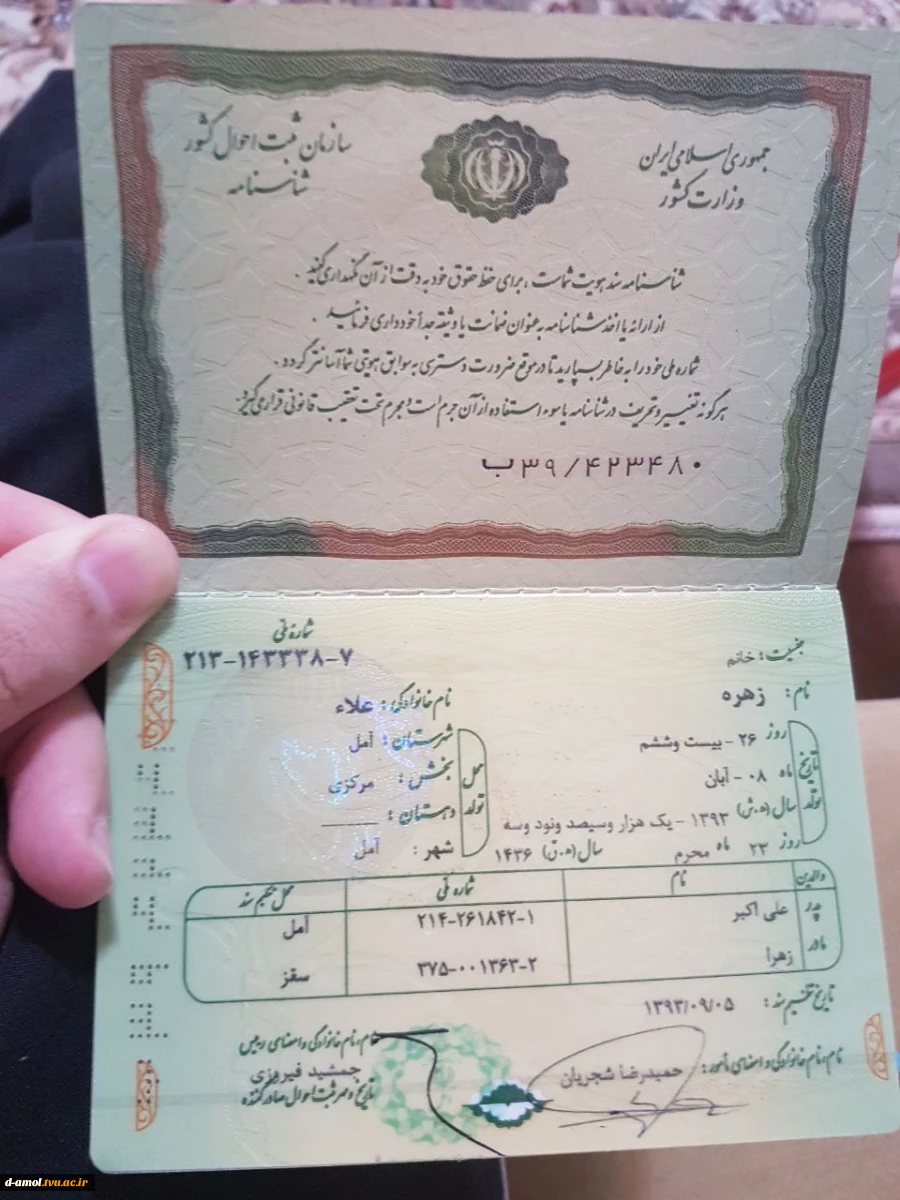 جمهوری اسلامی ایران
وزارت کشور
سازمان ثبت احوال کشور
شناسنامه
شناسنامه سند هویت شماست ، برای حفظ حقوق خود به دقت از آن نگهداری کنید .
از ارائه یا اخذ شناسنامه به عنوان ضمانت یا وثیقه جداً خودداری فرمائید .
شماره ملی خود را به خاطر بسپارید تا در موقع ضرورت دسترسی به سوابق هویتی شما آسانتر گردد .
هرگونه تغییر و تحریف در شناسنامه یا سوء استفاده از آن جرم است و مجرم تحت تعقیب قانونی قرار می گیرد.
ب۳۹/۴۲۳۴۸۰
شماره ملی
۲۱۳-۱۴۳۳۳۸-۷
جنسیت : خانم
نام : زهره
نام خانوادگی : علاء
تاریخ تولد
روز ۲۶ - بیست وششم
ماه ۰۸ - آبان
سال (ه.ش) ۱۳۹۳ - یک هزار وسیصد ونود وسه
روز ۲۳ ماه محرم سال (ه.ق) ۱۴۳۶
محل تولد
شهرستان : آمل
بخش : مرکزی
دهستان : ـــــــ
شهر : آمل
والدین نام شماره ملی محل تنظیم سند
پدر علی اکبر ۲۱۴-۲۶۱۸۴۲-۱ آمل
مادر زهرا ۳۷۵-۰۰۱۳۶۳-۲ سقز
تاریخ تنظیم سند : ۱۳۹۳/۰۹/۰۵
نام، نام خانوادگی و امضای مأمور : حمیدرضا شجریان
نام، نام خانوادگی و امضای رییس
جمشید فیروزی
تاریخ و مهر ثبت احوال صادرکننده
d-amol.tvu.ac.ir